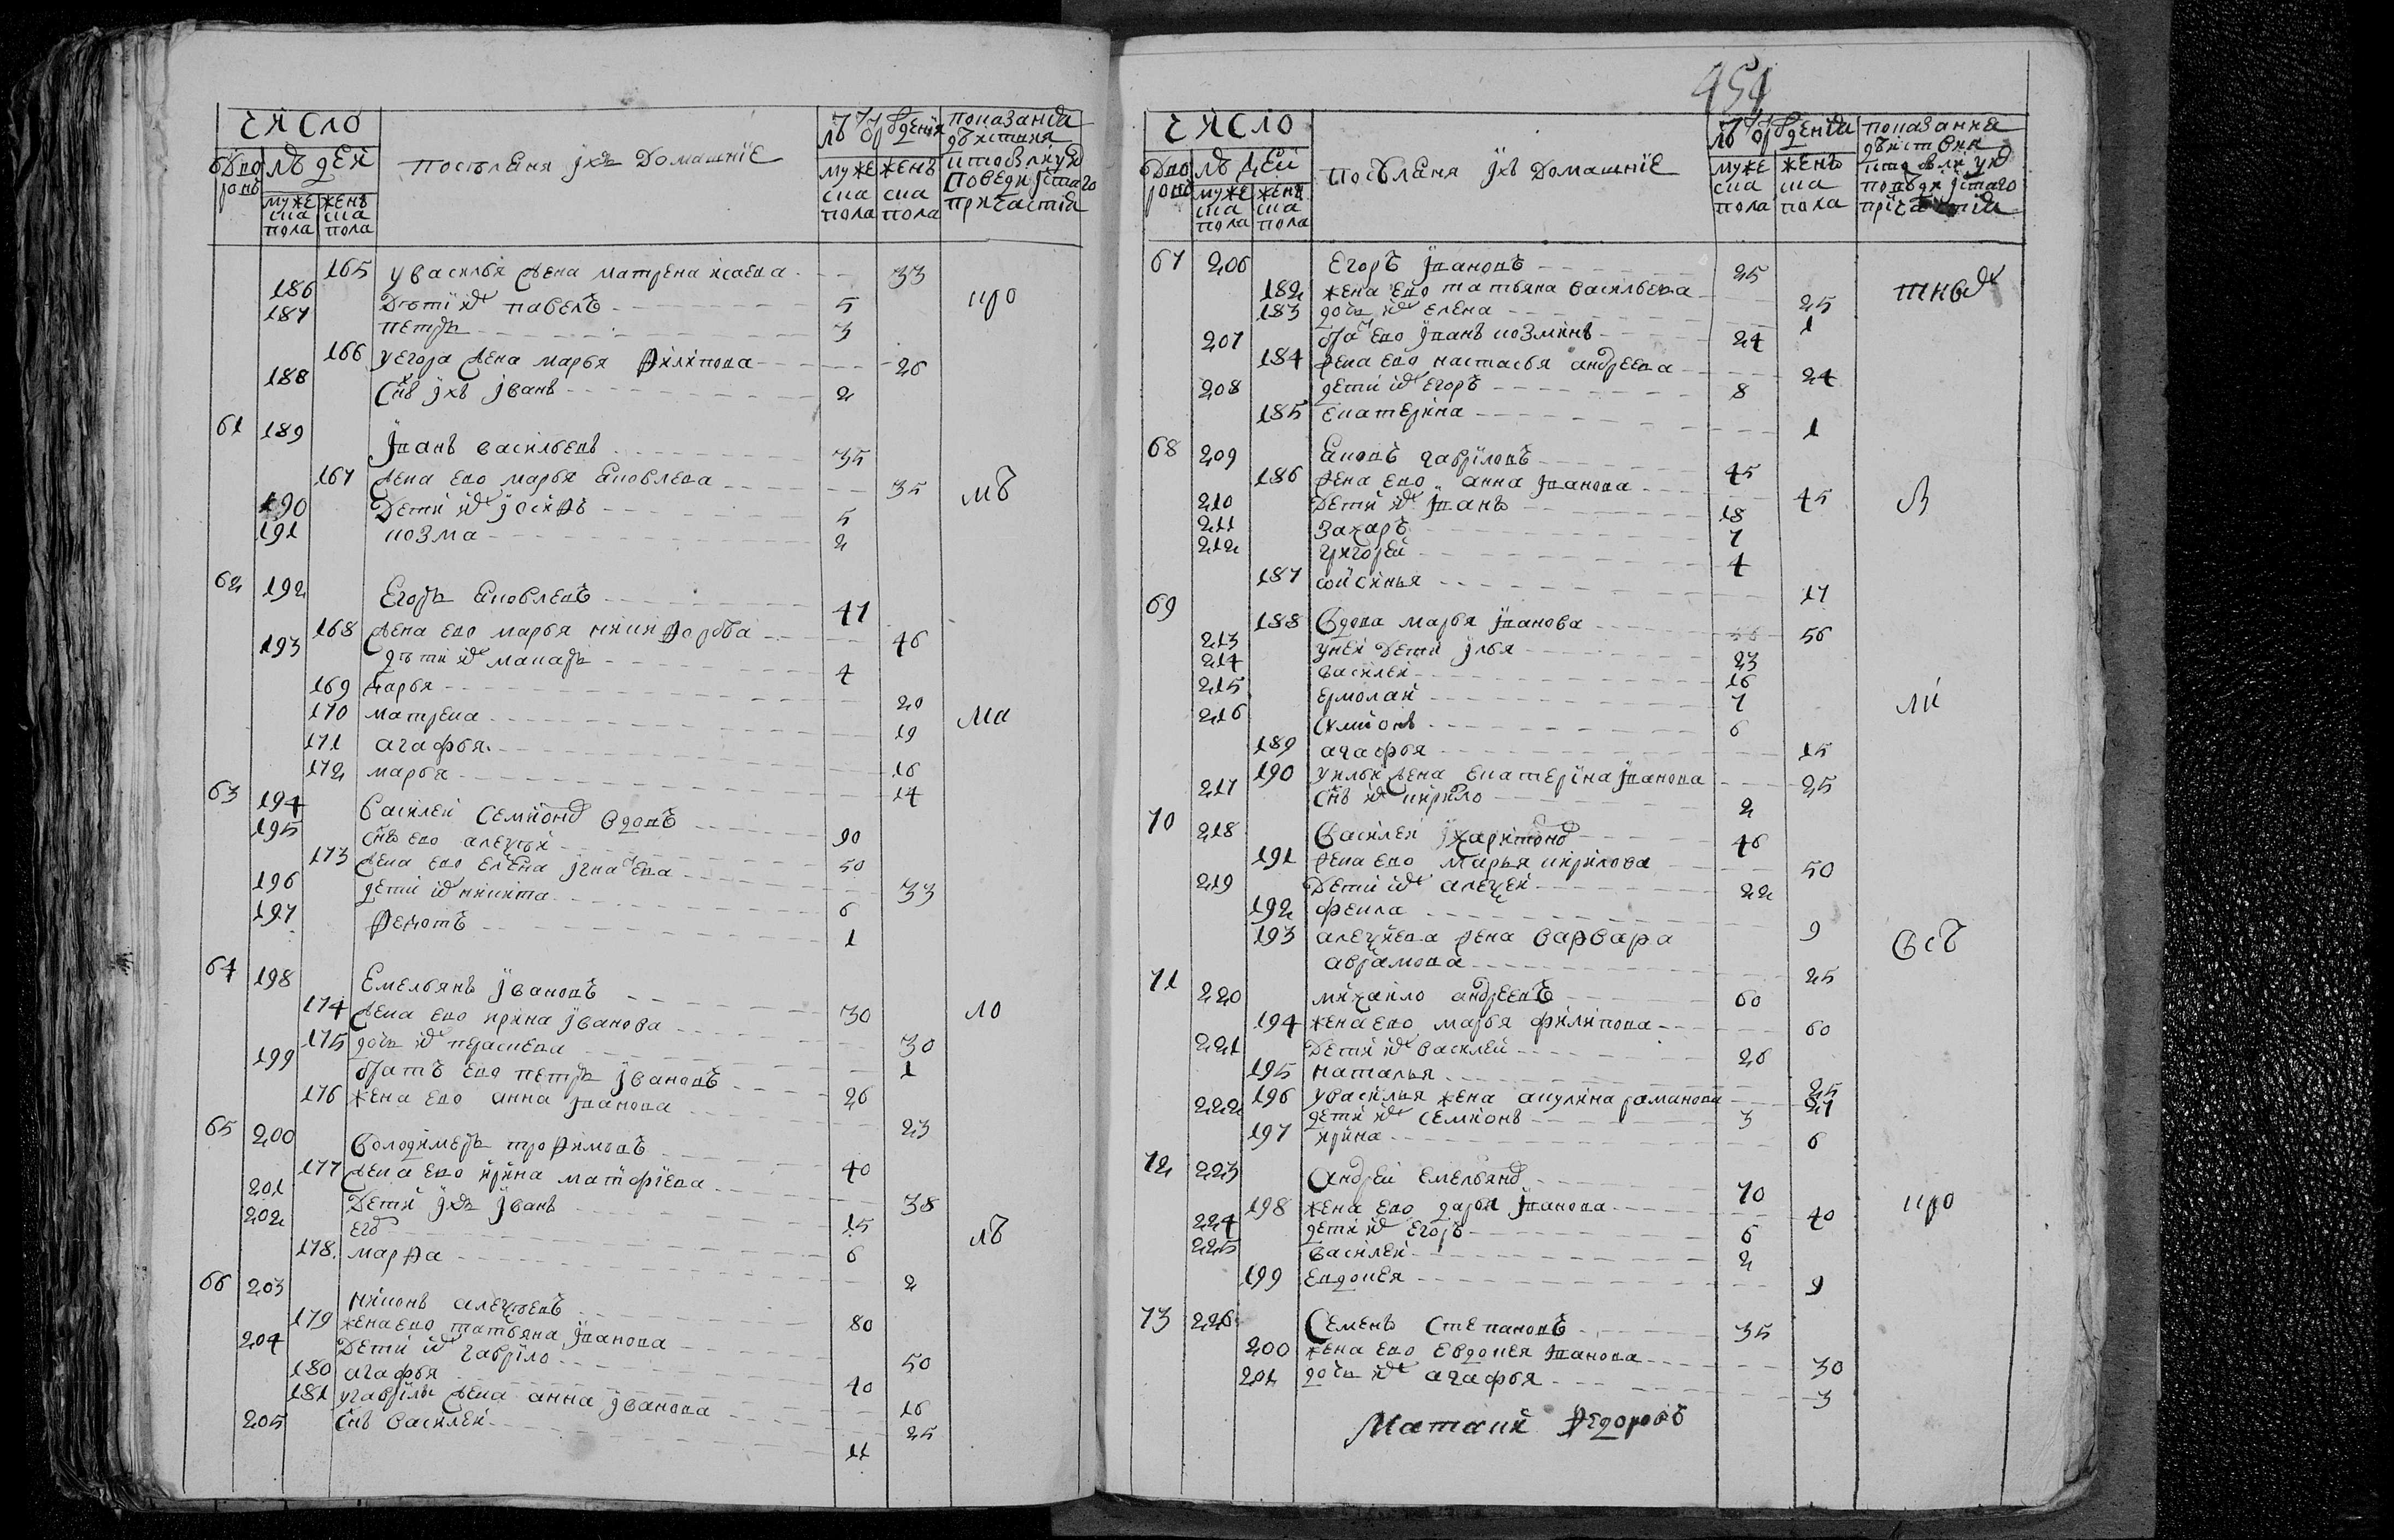 число
Дворовъ
людей
мужеска пола
женска пола
посѣляня ихъ домашние
мужеска пола
женска пола
165 у василья жена матрена исаева 33
186 Дѣти ихъ павелъ 5
187 петръ 3
про
166 у егора жена марья филипова 26
188 Снъ ихъ Iванъ 2
61 189 Iванъ васильевъ 35
167 жена ево марья яковлева 35
мъ
190 Дети ихъ Iосифъ 5
191 козма 2
62 192 Егоръ яковлевъ 41
168 жена ево марья никифорова 46
193 дѣти ихъ макаръ 4
169 дарья 20
170 матрена 19
ма
171 агафья 16
172 марья 14
63 194 Василеи Семионов вдовъ 90
195 снъ ево алеѯѣи 50
173 жена ево елена игнатева 33
196 дети их никита 6
197 федотъ 1
64 198 Емельянъ Iвановъ 30
174 жена ево ирина Iванова 30
ло
175 дочь их праскева 1
199 братъ ево петръ Iвановъ 26
176 жена ево анна Iванова 23
65 200 Володимеръ трофимовъ 40
177 жена ево ирина матфiева 38
201 Дети ихъ Iванъ 15
202 егор 6
лъ
178 марфа 2
66 203 никонъ алеѯѣевъ 80
179 жена ево татьяна Iванова 50
204 Дети их гаврiло 40
180 агафья 16
181 у гаврiлы жена анна Iванова 25
205 Снъ василеи 11
454
число
Дворовъ
людей
мужеска пола
женска пола
посѣляня ихъ домашнiе
мужеска пола
женска пола
67 206 Егоръ Iвановъ 25
тных
182 жена ево татьяна васильева 25
183 дочь их елена 1
207 братъ ево Iванъ козминъ 24
184 жена ево настасья андреева 24
208 дети их егоръ 8
185 екатерина 1
68 209 Яковъ гаврiловъ 45
186 жена ево анна Iванова 45
210 Дети их Iванъ 18
211 Захаръ 7
212 григореи 4
187 аѯинья 17
69 188 Вдова марья Iванова 56
213 у неи дети Iлья 23
214 василеи 16
215 ермолаи 7
ли
216 Симионъ 6
189 агафья 15
190 у ильи жена екатерiна Iванова 25
217 снъ их кирило 2
70 218 Василеи харитонов 46
191 жена ево марья кирилова 50
219 Дети их алеѯеи 22
192 фекла 9
193 алеѯиева жена варвара
аврамова 25
всъ
71 220 михаило андреевъ 60
194 жена ево марья филипова 60
221 Дети их василеи 26
195 наталья 25
196 у василья жена акулина раманова 27
222 дети их семионъ 3
197 ирина 6
72 223 Андреи емельянов 70
198 жена ево дарья Iванова 40
про
224 дети их егоръ 6
225 василеи 2
199 евдокея 9
73 226 Семенъ Степановъ 35
200 жена ево евдокея Iванова 30
201 дочь их агафья 3
Матвии Федоровъ